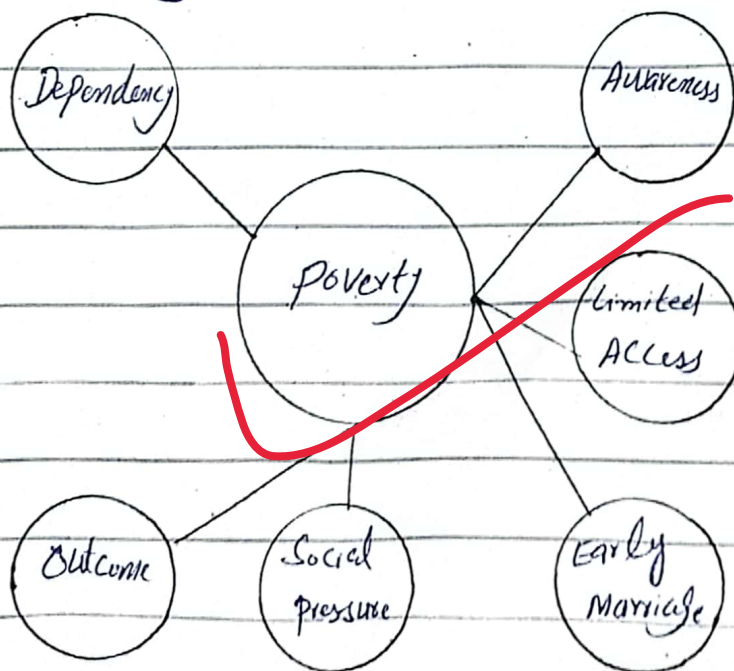 Dependency
Awareness
Poverty
Limited
Access
Outcome
Social
pressure
Early
Marriage